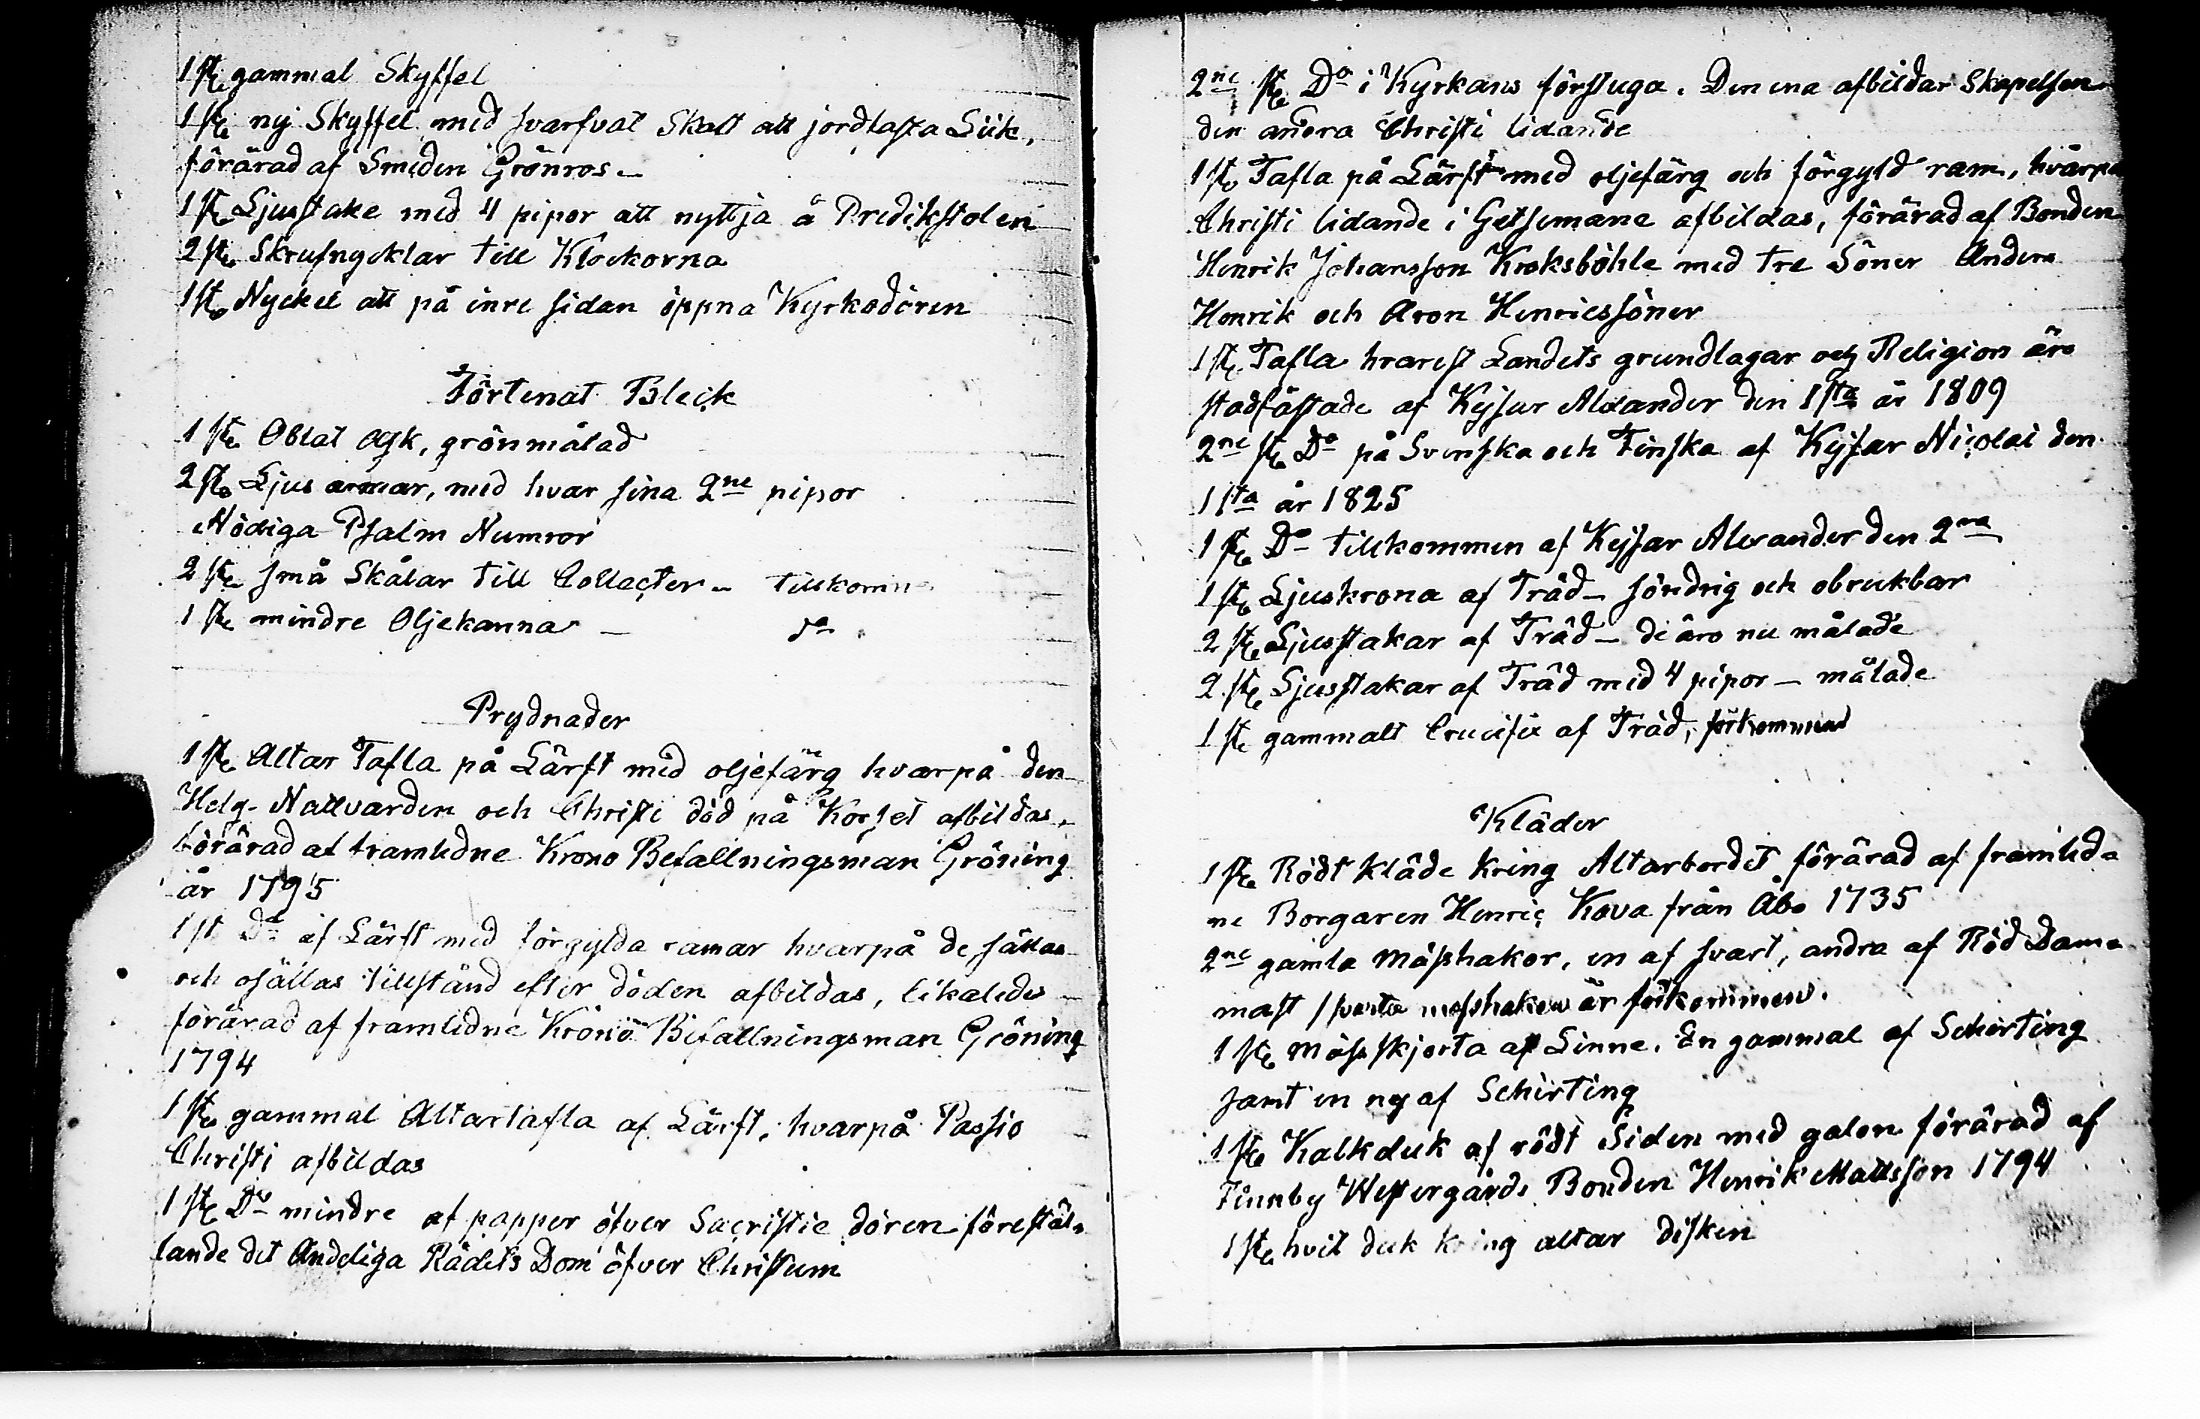 1 st gammal Skyffel
1 st ny Skyffel med svarfvat Skaft att jordkasta Liik,
förärad af Smeden Grönros –
1 st Ljusstake med 4 pipor att nyttja å Predikstolen
2 st Skrufnycklar till Klockorna
1 st Nyckel att på inre sidan öppna Kyrkodören
Förtenat Bleck
1 st Oblat Ask, grönmålad
2 st Ljus armar, med hvar sina 2ne pipor
Nödiga Psalm Numror
2 st små Skålar till Collecter – tillkomn
1 st mindre Oljekanna – do
Prydnader
1 st Altar Tafla på Lärft med oljefärg hvarpå den
Helg. Nattvarden och Christi död på Korset afbildas,
förärad af framledne Krono Befallningsman Gröning
år 1795
1 st Do af Lärft med förgylda ramar hvarpå de sällas
och osällas tillstånd efter döden afbildas, likaledes
förärad af framledne Krono Befallningsman Gröning
1794
1 st gammal Altartafla af Lärft, hvarpå Passio
Christi afbildas
1 st Do mindre af papper öfver Sacristie dören förestäl-
lande det Andeliga Rådets Dom öfver Christum
2ne st Do i Kyrkans förstuga. Den ena afbildar Skapelsen
den andra Christi lidande
1 st Tafla på Lärft med oljefärg och förgyld ram, hvarpå
Christi lidande i Getsemane afbildas, förärad af Bonden
Henrik Johansson Kroksböhle med tre Söner Anders
Henrik och Aron Henricssöner
1 st Tafla hvarest Landets grundlagar och Religion äro
stadfästade af Kejsar Alexander den 1sta år 1809
2ne st Do på Svenska och Finska af Kejsar Nicolai den
1sta år 1825
1 st Do tillkommen af Kejsar Alexander den 2na
1 st Ljuskrona af Träd – söndrig och obrukbar
2 st Ljusstakar af Träd – de äro nu målade
2 st Ljusstakar af Träd med 4 pipor – målade
1 st gammalt Crucifix af Träd, förkommen
Kläder
1 st Rödt kläde kring Altarbordet förärad af framled-
ne Borgaren Henric Kova från Åbo 1735
2ne gamla Mässhakor, en af svart, andra af Röd Dam-
mast / svarta mässhaken är förkommen.
1 st Mässskjorta af Linne. En gammal af Schirting
samt en ny af Schirting
1 st Kalkduk af rödt Siden med galon förärad af
Finnby Westergårds Bonden Henrik Mattsson 1794
1 st hvit duk kring altar disken